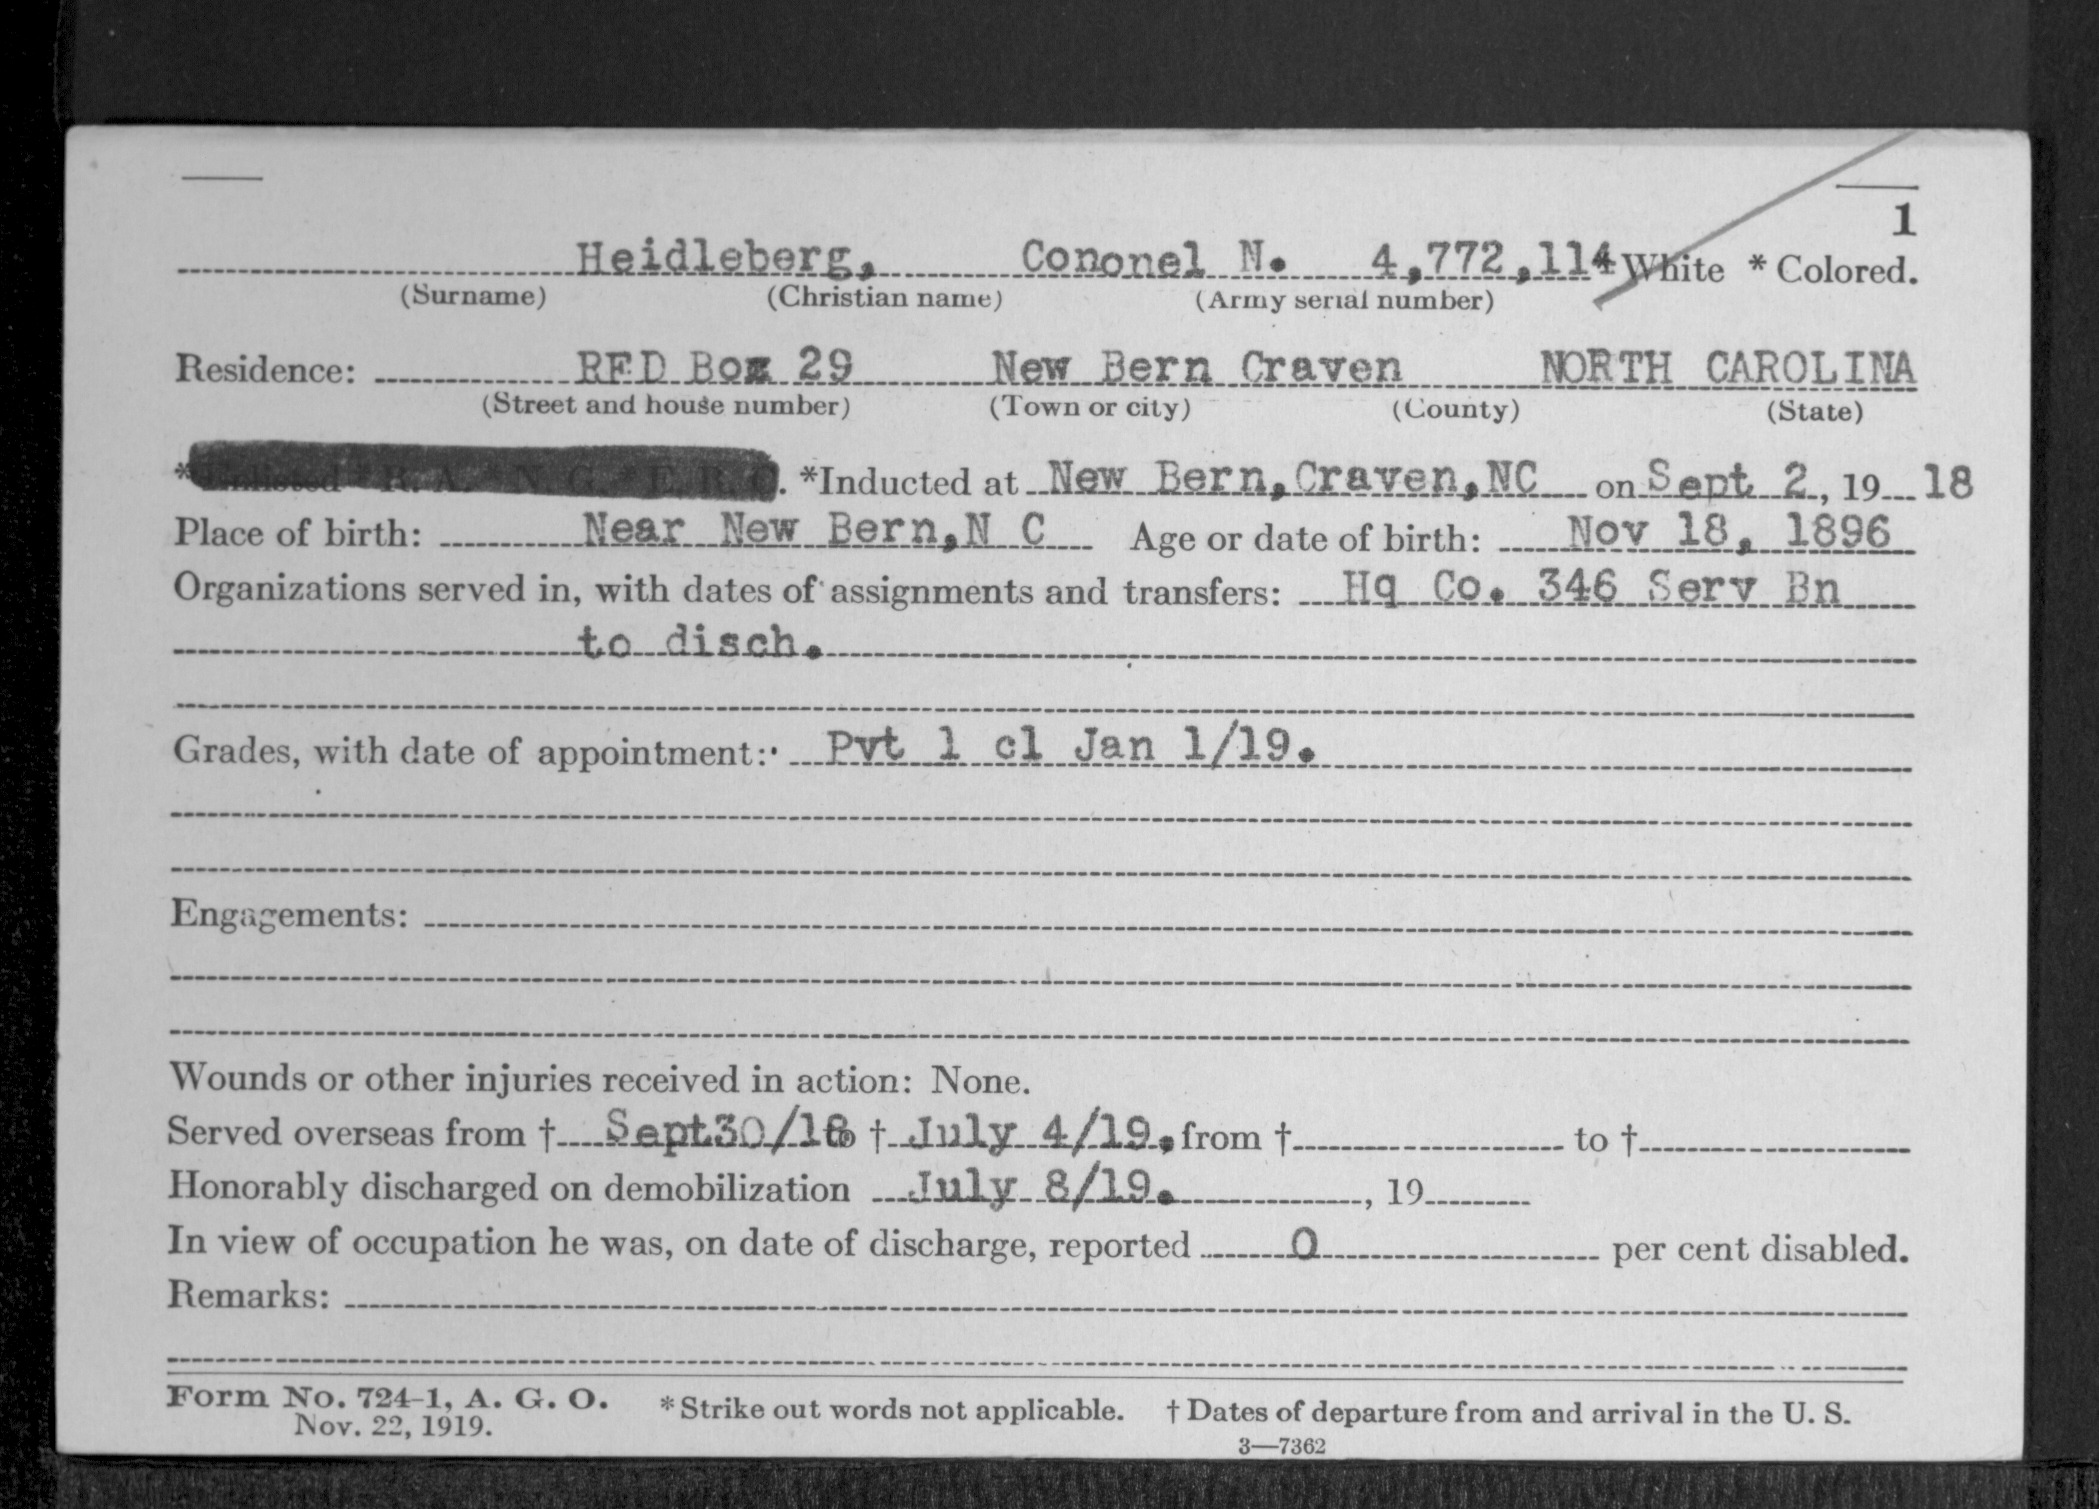 1
Heidleberg, Cononel N. 4,772,114 White * Colored.
(Surname) (Christian name) (Army serial number)
Residence: RFD Box 29 New Bern Craven NORTH CAROLINA
(Street and house number) (Town or city) (County) (State)
*Enlisted * R. A. * N. G. * E. R. C. *Inducted at New Bern,Craven,NC on Sept 2, 19 18
Place of birth: Near New Bern,N C Age or date of birth: Nov 18, 1896
Organizations served in, with dates of assignments and transfers: Hq Co. 346 Serv Bn
to disch.
Grades, with date of appointment: Pvt 1 cl Jan 1/19.
Engagements:
Wounds or other injuries received in action: None.
Served overseas from † Sept30/18 to † July 4/19, from † to †
Honorably discharged on demobilization July 8/19. , 19
In view of occupation he was, on date of discharge, reported 0 per cent disabled.
Remarks:
Form No. 724-1, A. G. O. *Strike out words not applicable. † Dates of departure from and arrival in the U. S.
Nov. 22, 1919.
3—7362